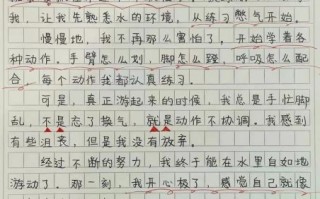 我，让我先熟悉水的环境，从练习憋气开始。
慢慢地，我不再那么害怕了，开始学着各
种动作。手臂怎么划，脚怎么蹬，呼吸怎么配
合，每个动作我都认真练习。
可是，真正游起来的时候，我总是手忙脚
乱，不是忘了换气，就是动作不协调。我感到
有些沮丧，但是我没有放弃。
经过不断的努力，我终于能在水里自如地
游动了。那一刻，我开心极了，感觉自己就像